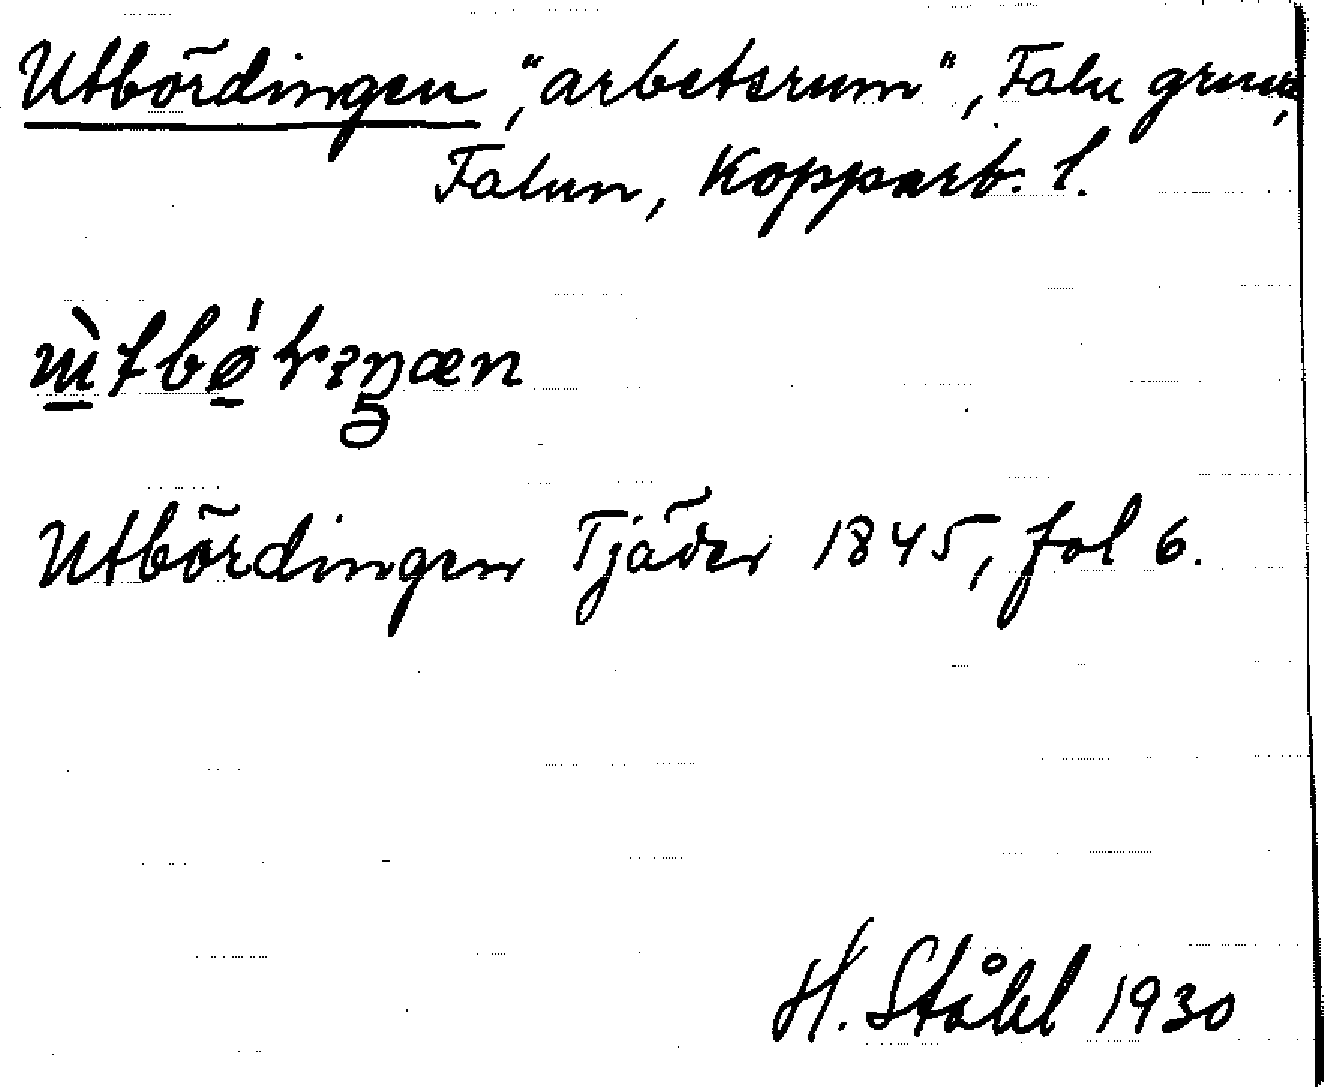 Utbördingen, "arbetsrum", Falu gruva,
Falun, Kopparb. l.
Utbördingen Tjäder 1845, fol 6.
H. Ståhl 1930